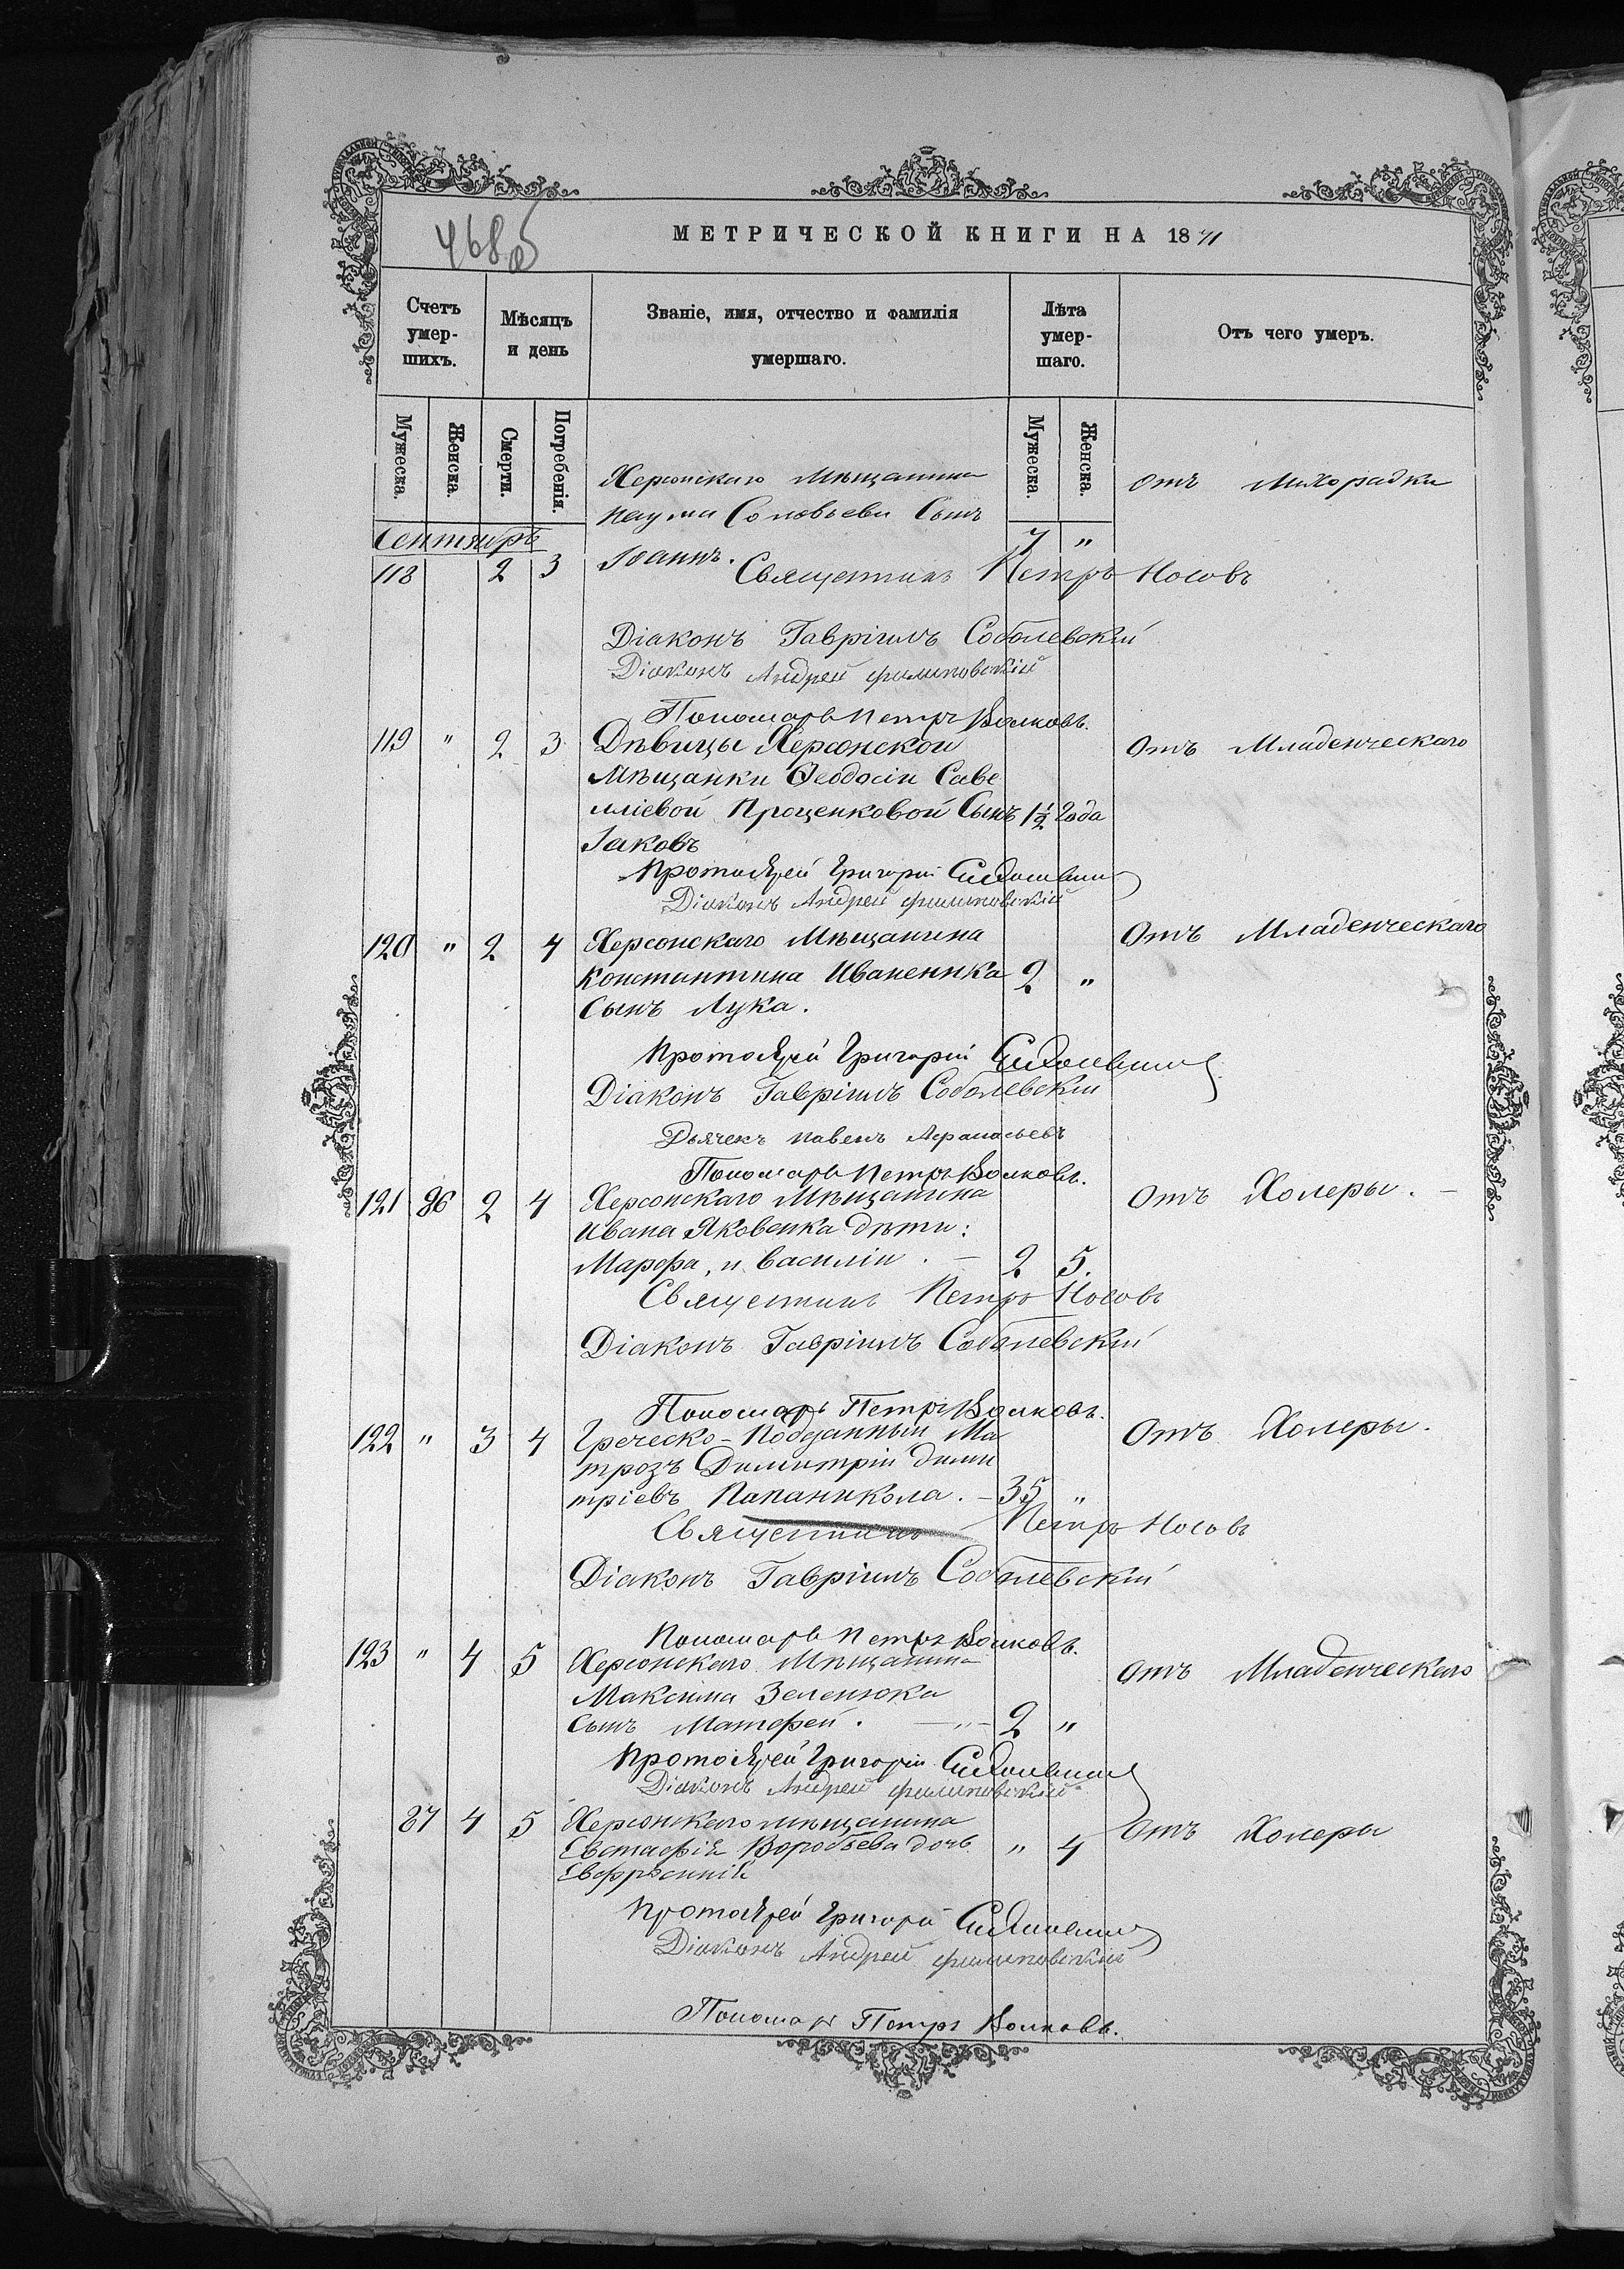 468 об
МЕТРИЧЕСКОЙ КНИГИ НА 1871
Счетъ умер-шихъ.
Мѣсяцъ и день
Званіе, имя, отчество и фамилія умершаго.
Лѣта умер-шаго.
Отъ чего умеръ.
Мужеска. Женска. Смерти. Погребенія. Мужеска. Женска.
Херсонскаго Мѣщанина отъ Лихорадки
Наума Соловьева Сынъ
Сентябрь 7 "
118 2 3 Іоаннъ.
Священникъ Петръ Носовъ
Діаконъ Гавріилъ Соболевскій
Діаконъ Андрей Филиповскій
Пономарь Петръ Волковъ.
119 " 2 3 Дѣвицы Херсонской Отъ Младенческаго
Мѣщанки Ѳеодосіи Саве
лліевой Проценковой Сынъ 1½ Года
Іаковъ
Протоіерей Григорій
Діаконъ Андрей Филиповскій
120 " 2 4 Херсонскаго Мѣщанина Отъ Младенческаго
Константина Иваненика 2 "
Сынъ Лука.
Протоіерей Григорій
Діаконъ Гавріилъ Соболевскій
Дьячекъ Павелъ Афанасьевъ
Пономарь Петръ Волковъ.
121 86 2 4 Херсонскаго Мѣщанина Отъ Холеры. –
Ивана Яковенка дѣти:
Марфа, и Василій. – 2 5.
Священникъ Петръ Носовъ
Діаконъ Гавріилъ Соболевскій
Пономарь Петръ Волковъ.
122 " 3 4 Греческо-Подданный Ма Отъ Холеры.
трозъ Димитрій дими
тріевъ Папаникола. – 35 "
Священникъ Петръ Носовъ
Діаконъ Гавріилъ Соболевскій
Пономарь Петръ Волковъ.
123 " 4 5 Херсонскаго Мѣщанина Отъ Младенческаго
Максима Зеленюка
Сынъ Матфей. –"– 2 "
Протоіерей Григорій
Діаконъ Андрей Филиповскій
87 4 5 Херсонскаго мѣщанина Отъ Холеры
Евстафія Воробьева дочь " 4
Протоіерей Григорій
Діаконъ Андрей Филиповскій
Пономарь Петръ Волковъ.